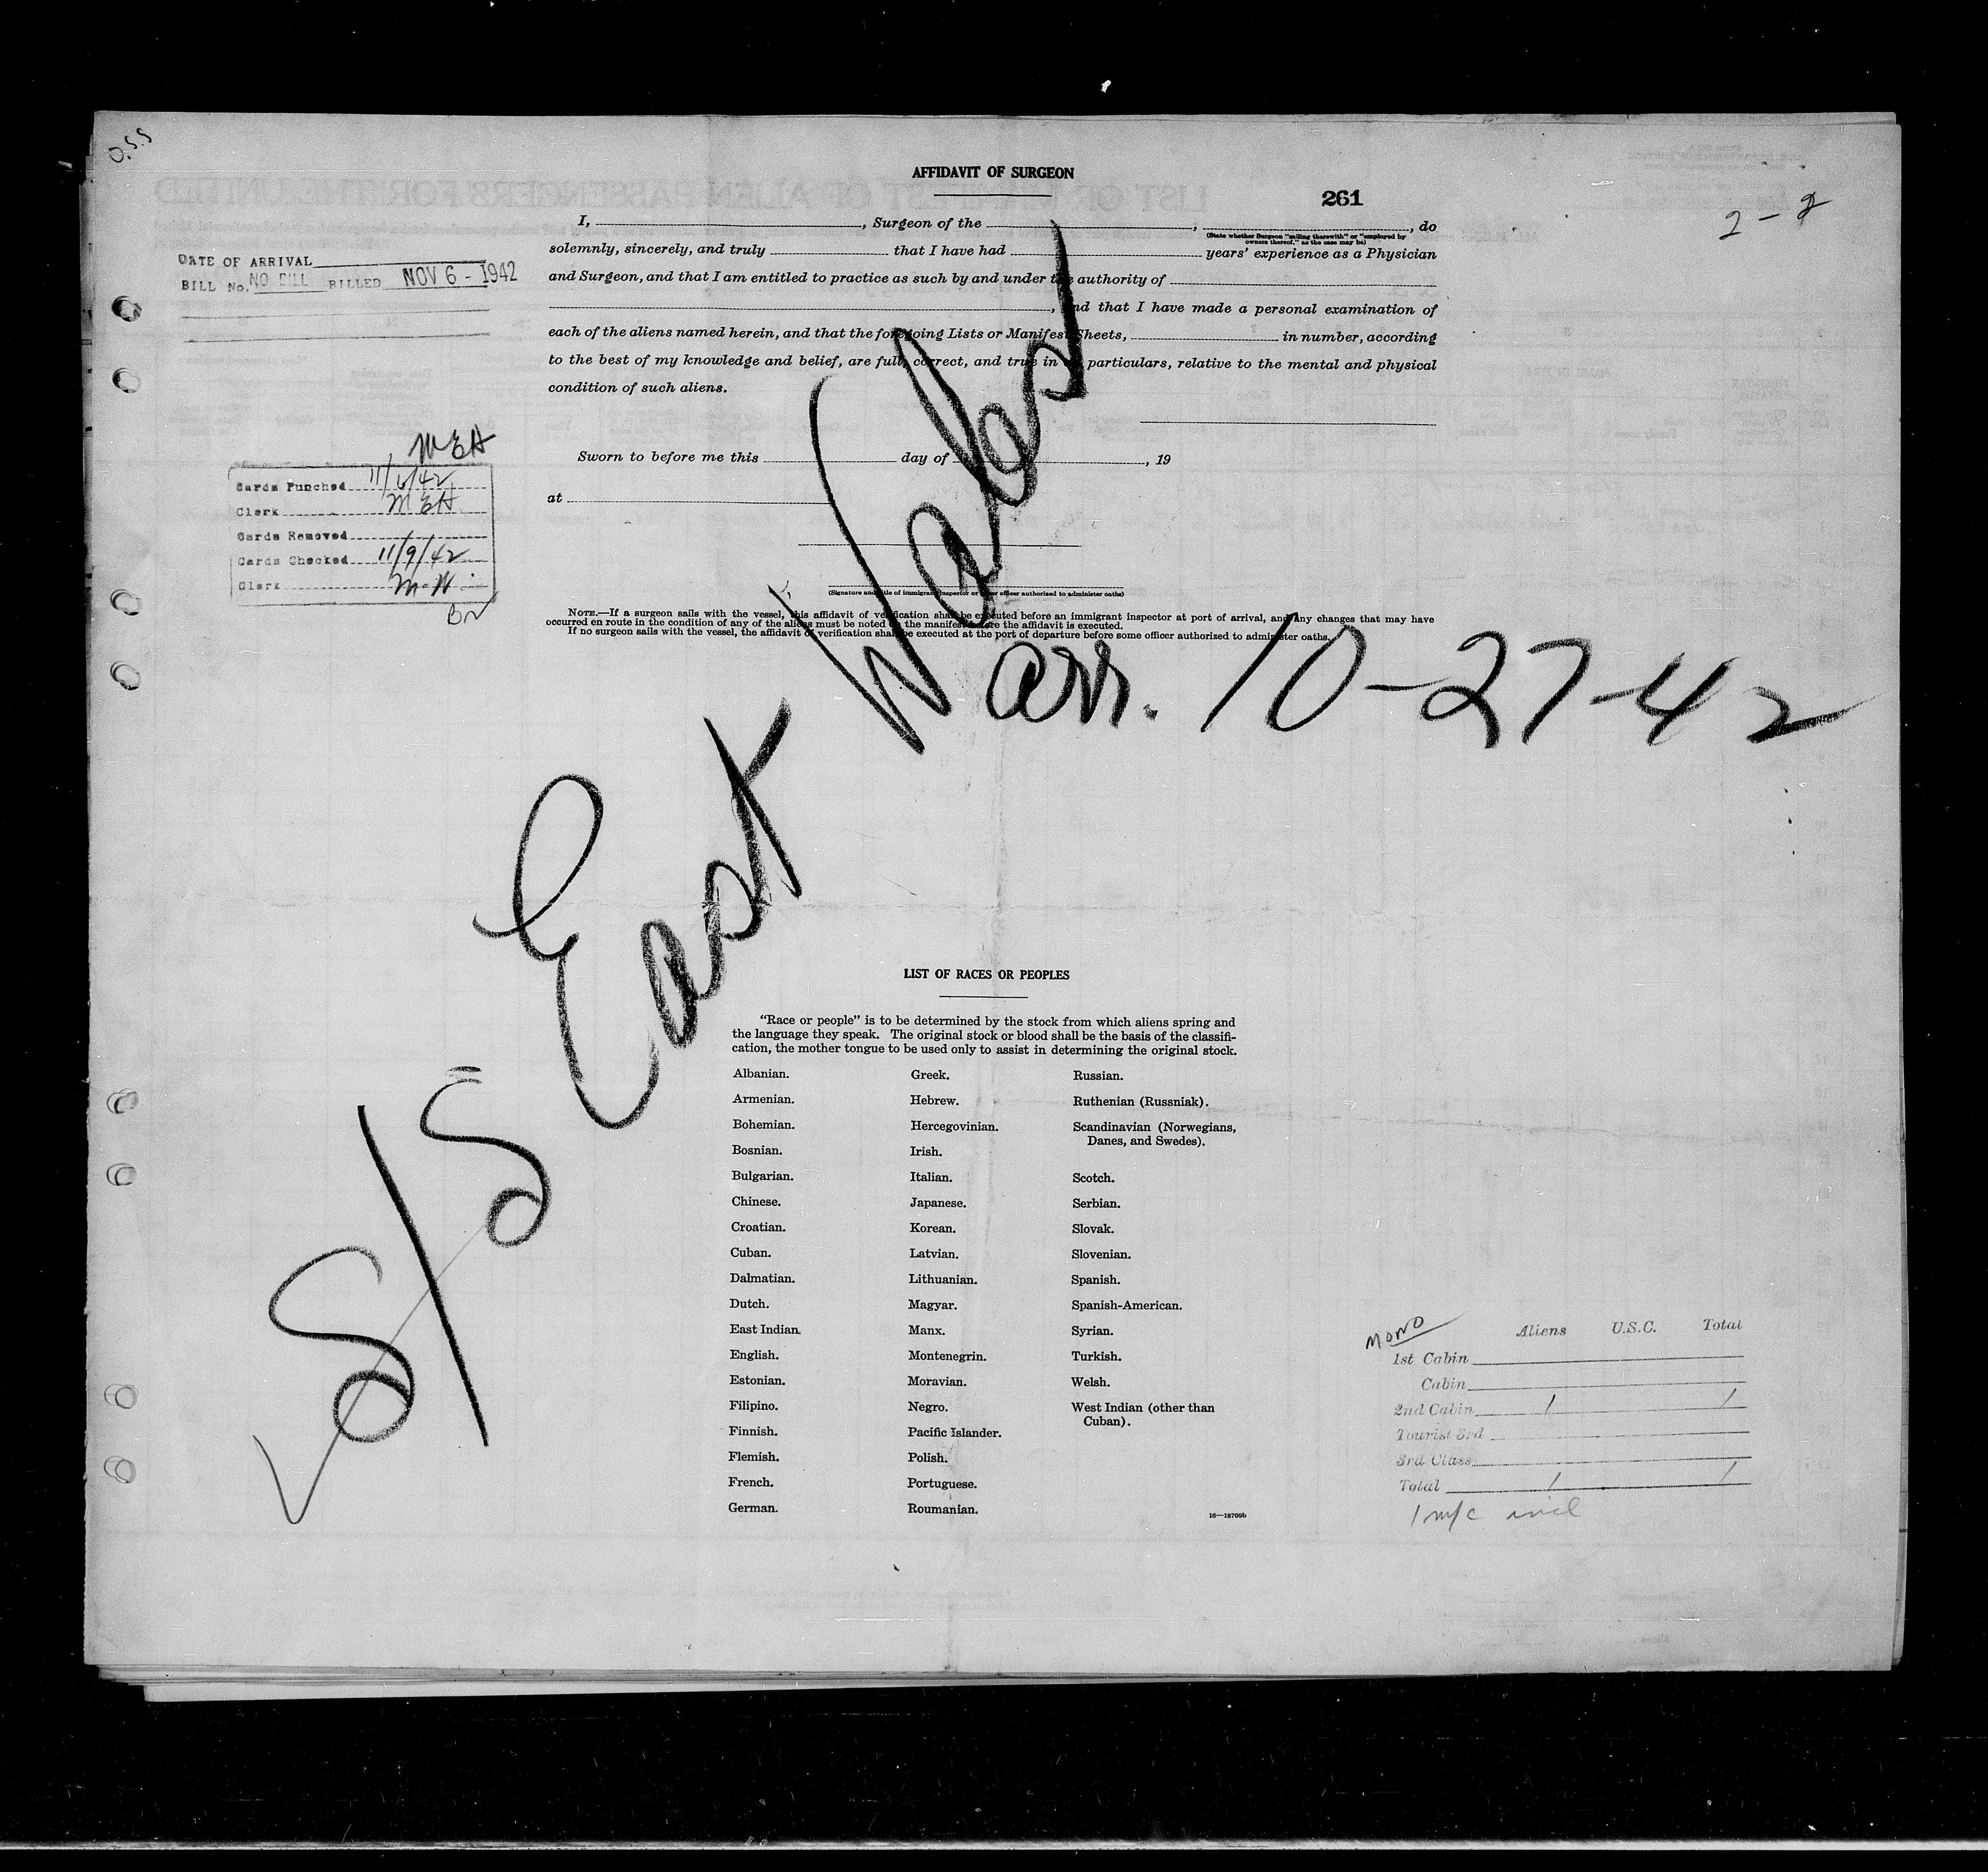 O.S.S
AFFIDAVIT OF SURGEON
261
2-2
I, , Surgeon of the , , do
(State whether Surgeon "sailing therewith" or "employed by owners thereof," as the case may be)
solemnly, sincerely, and truly that I have had years' experience as a Physician
and Surgeon, and that I am entitled to practice as such by and under the authority of
, and that I have made a personal examination of
each of the aliens named herein, and that the foregoing Lists or Manifest Sheets, in number, according
to the best of my knowledge and belief, are full, correct, and true in all particulars, relative to the mental and physical
condition of such aliens.
DATE OF ARRIVAL
BILL No. NO BILL BILLED NOV 6 - 1942
MEH
Cards Punched 11/6/42
Clerk MEH
Cards Removed
Cards Checked 11/9/42
Clerk M-H
BN
Sworn to before me this day of , 19
at
(Signature and title of immigrant inspector or other officer authorized to administer oaths)
NOTE.—If a surgeon sails with the vessel, this affidavit of verification shall be executed before an immigrant inspector at port of arrival, and any changes that may have
occurred en route in the condition of any of the aliens must be noted on the manifest before the affidavit is executed.
If no surgeon sails with the vessel, the affidavit of verification shall be executed at the port of departure before some officer authorized to administer oaths.
S/S East Wales
arr. 10-27-42
LIST OF RACES OR PEOPLES
"Race or people" is to be determined by the stock from which aliens spring and
the language they speak. The original stock or blood shall be the basis of the classifi-
cation, the mother tongue to be used only to assist in determining the original stock.
Albanian.
Armenian.
Bohemian.
Bosnian.
Bulgarian.
Chinese.
Croatian.
Cuban.
Dalmatian.
Dutch.
East Indian.
English.
Estonian.
Filipino.
Finnish.
Flemish.
French.
German.
Greek.
Hebrew.
Hercegovinian.
Irish.
Italian.
Japanese.
Korean.
Latvian.
Lithuanian.
Magyar.
Manx.
Montenegrin.
Moravian.
Negro.
Pacific Islander.
Polish.
Portuguese.
Roumanian.
Russian.
Ruthenian (Russniak).
Scandinavian (Norwegians,
Danes, and Swedes).
Scotch.
Serbian.
Slovak.
Slovenian.
Spanish.
Spanish-American.
Syrian.
Turkish.
Welsh.
West Indian (other than
Cuban).
16—18709b
MONO
Aliens U.S.C. Total
1st Cabin
Cabin
2nd Cabin 1 1
Tourist 3rd
3rd Class
Total 1 1
1 m/c incl